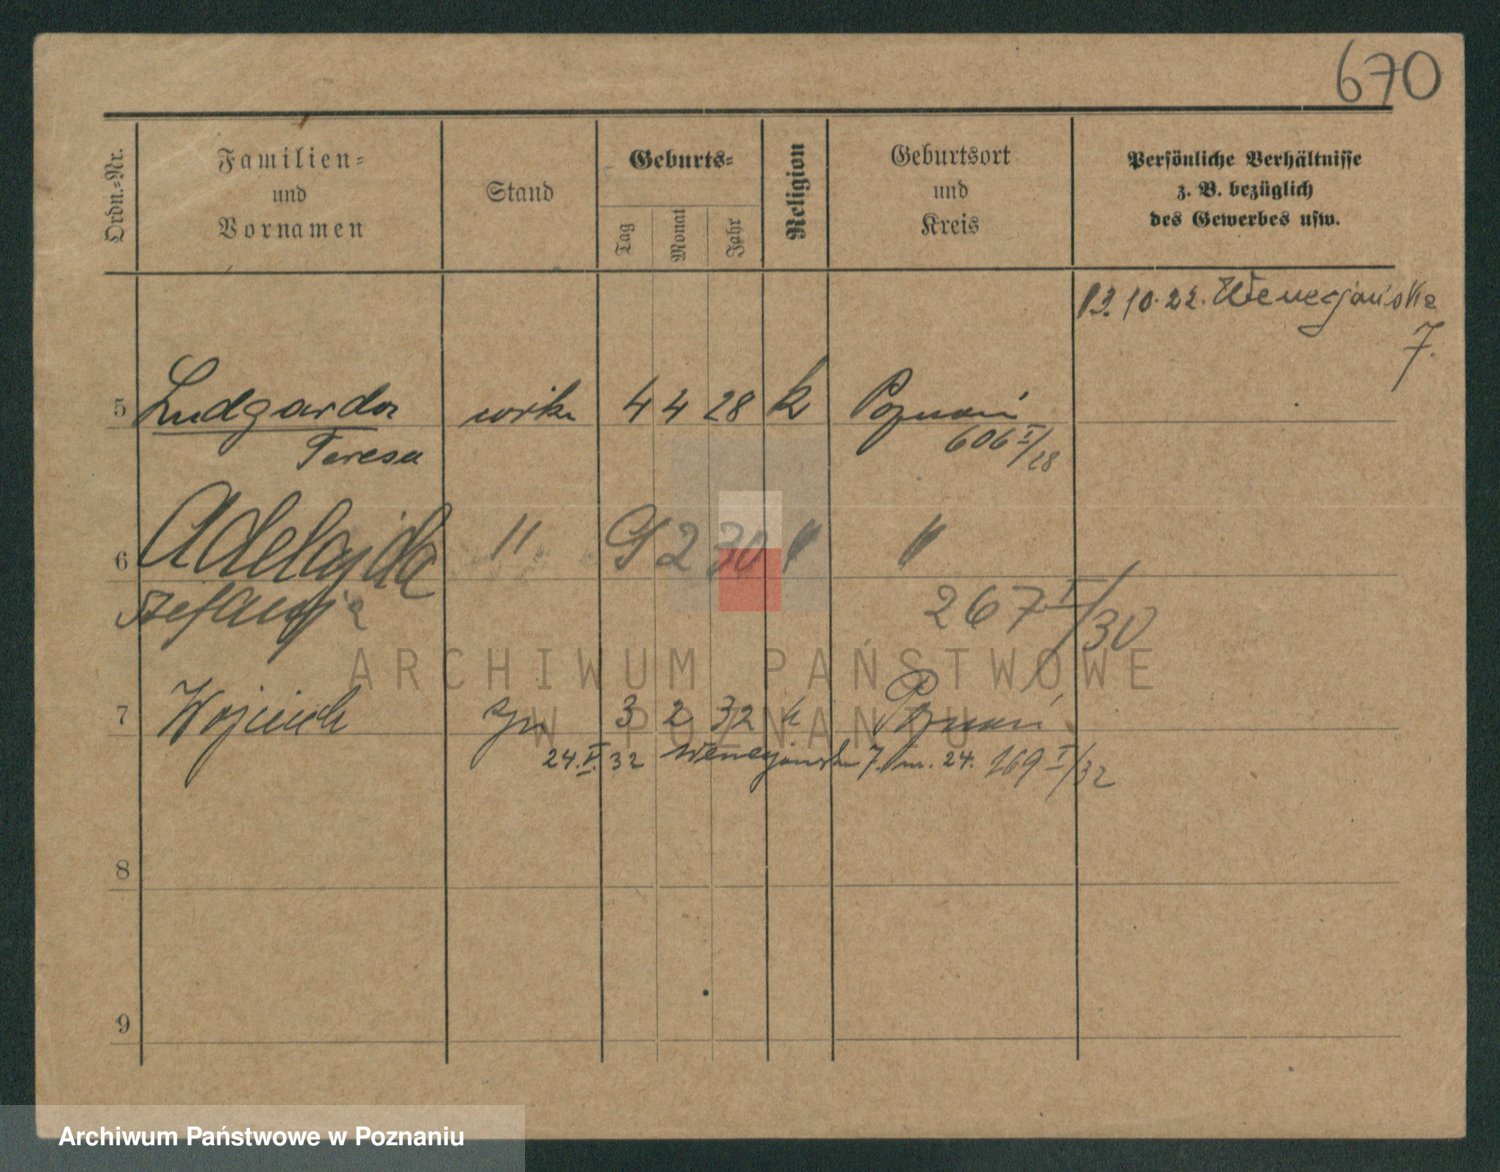 670
Ordn.-Nr.
Familien-
und
Vornamen
Stand
Geburts-
Tag
Monat
Jahr
Religion
Geburtsort
und
Kreis
Persönliche Verhältnisse
z. B. bezüglich
des Gewerbes usw.
13.10.22. Wenecjańska
7.
5 Ludgarda córka 4 4 28 k Poznań
Teresa 606 I/28
6 Adelajda " 9 2 30 " "
Stefanja 267 I/30
7 Wojciech syn 3 2 32 k Poznań
24.V.32 Wenecjańska 7. m. 24. 169 I/32
8
9
ARCHIWUM PAŃSTWOWE
W POZNANIU
Archiwum Państwowe w Poznaniu